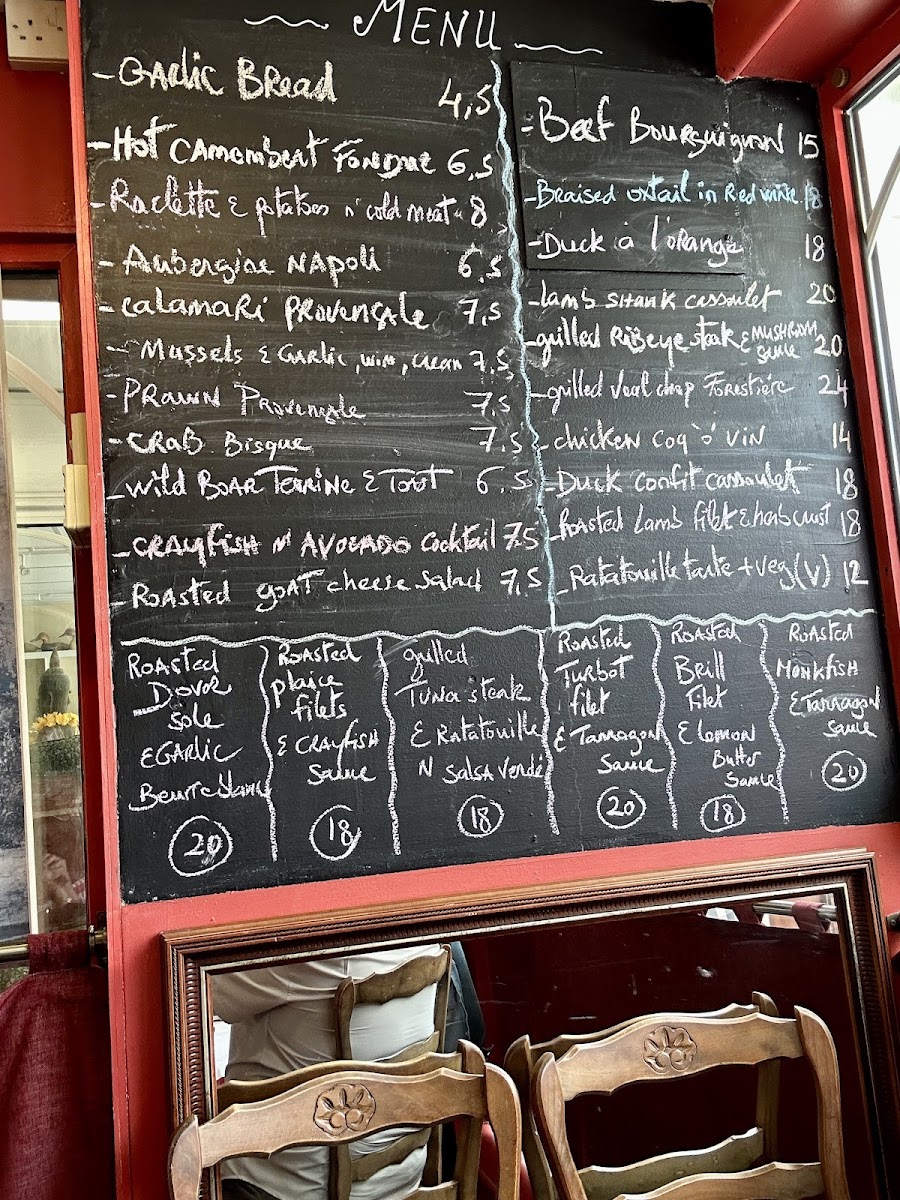 MENU
- Garlic Bread 4,5
- Hot Camembert Fondue 6,5
- Raclette & potatoes n' cold meat 8
- Aubergine Napoli 6,5
- Calamari Provençale 7,5
- Mussels & Garlic, wine, cream 7,5
- Prawn Provençale 7,5
- Crab Bisque 7,5
- Wild Boar Terrine & Toast 6,5
- Crayfish n Avocado Cocktail 7,5
- Roasted goat cheese salad 7,5
- Beef Bourguignon 15
- Braised oxtail in Red wine 18
- Duck à l'orange 18
- Lamb shank cassoulet 20
- grilled Ribeye steak & mushroom sauce 20
- grilled Veal chop Forestière 24
- chicken coq 'o' vin 14
- Duck confit cassoulet 18
- Roasted Lamb filet & herb crust 18
- Ratatouille tarte + veg (V) 12
Roasted
Dover
sole
& Garlic
Beurre blanc
20
Roasted
plaice
filets
& Crayfish
sauce
18
grilled
Tuna steak
& Ratatouille
N salsa verde
18
Roasted
Turbot
filet
& Tarragon
sauce
20
Roasted
Brill
filet
& lemon
Butter
sauce
18
Roasted
Monkfish
& Tarragon
sauce
20